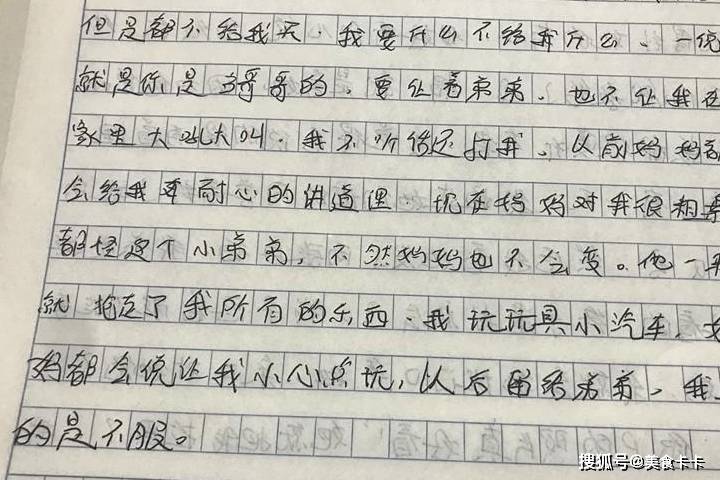 但是都不给我买．我要什么不给我什么．一说
就是你是当哥哥的．要让着弟弟．也不让我在
家里大吼大叫．我不听话还打我．以前妈妈都
会给我耐心的讲道理．现在妈妈对我很粗暴
都怪这个小弟弟，不然妈妈也不会变。他一来
就抢走了我所有的东西．我玩玩具小汽车．
妈都会说让我小心点玩，以后留给弟弟．我
的是不服。
搜狐号@美食卡卡